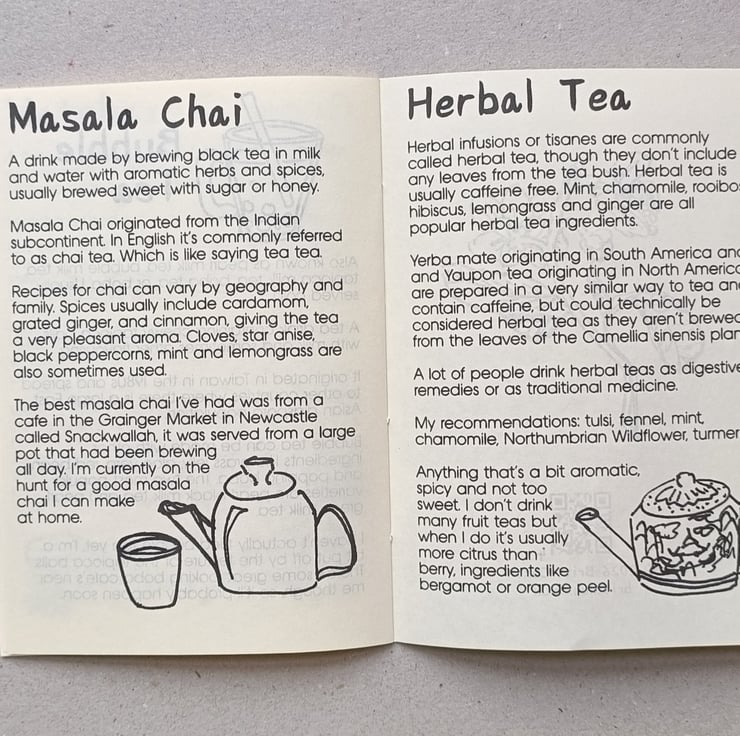 Masala Chai
A drink made by brewing black tea in milk
and water with aromatic herbs and spices,
usually brewed sweet with sugar or honey.
Masala Chai originated from the Indian
subcontinent. In English it's commonly referred
to as chai tea. Which is like saying tea tea.
Recipes for chai can vary by geography and
family. Spices usually include cardamom,
grated ginger, and cinnamon, giving the tea
a very pleasant aroma. Cloves, star anise,
black peppercorns, mint and lemongrass are
also sometimes used.
The best masala chai I've had was from a
cafe in the Grainger Market in Newcastle
called Snackwallah, it was served from a large
pot that had been brewing
all day. I'm currently on the
hunt for a good masala
chai I can make
at home.
Herbal Tea
Herbal infusions or tisanes are commonly
called herbal tea, though they don't include
any leaves from the tea bush. Herbal tea is
usually caffeine free. Mint, chamomile, rooibo
hibiscus, lemongrass and ginger are all
popular herbal tea ingredients.
Yerba mate originating in South America and
and Yaupon tea originating in North America
are prepared in a very similar way to tea and
contain caffeine, but could technically be
considered herbal tea as they aren't brewed
from the leaves of the Camellia sinensis plan
A lot of people drink herbal teas as digestive
remedies or as traditional medicine.
My recommendations: tulsi, fennel, mint,
chamomile, Northumbrian Wildflower, turmer
Anything that's a bit aromatic,
spicy and not too
sweet. I don't drink
many fruit teas but
when I do it's usually
more citrus than
berry, ingredients like
bergamot or orange peel.